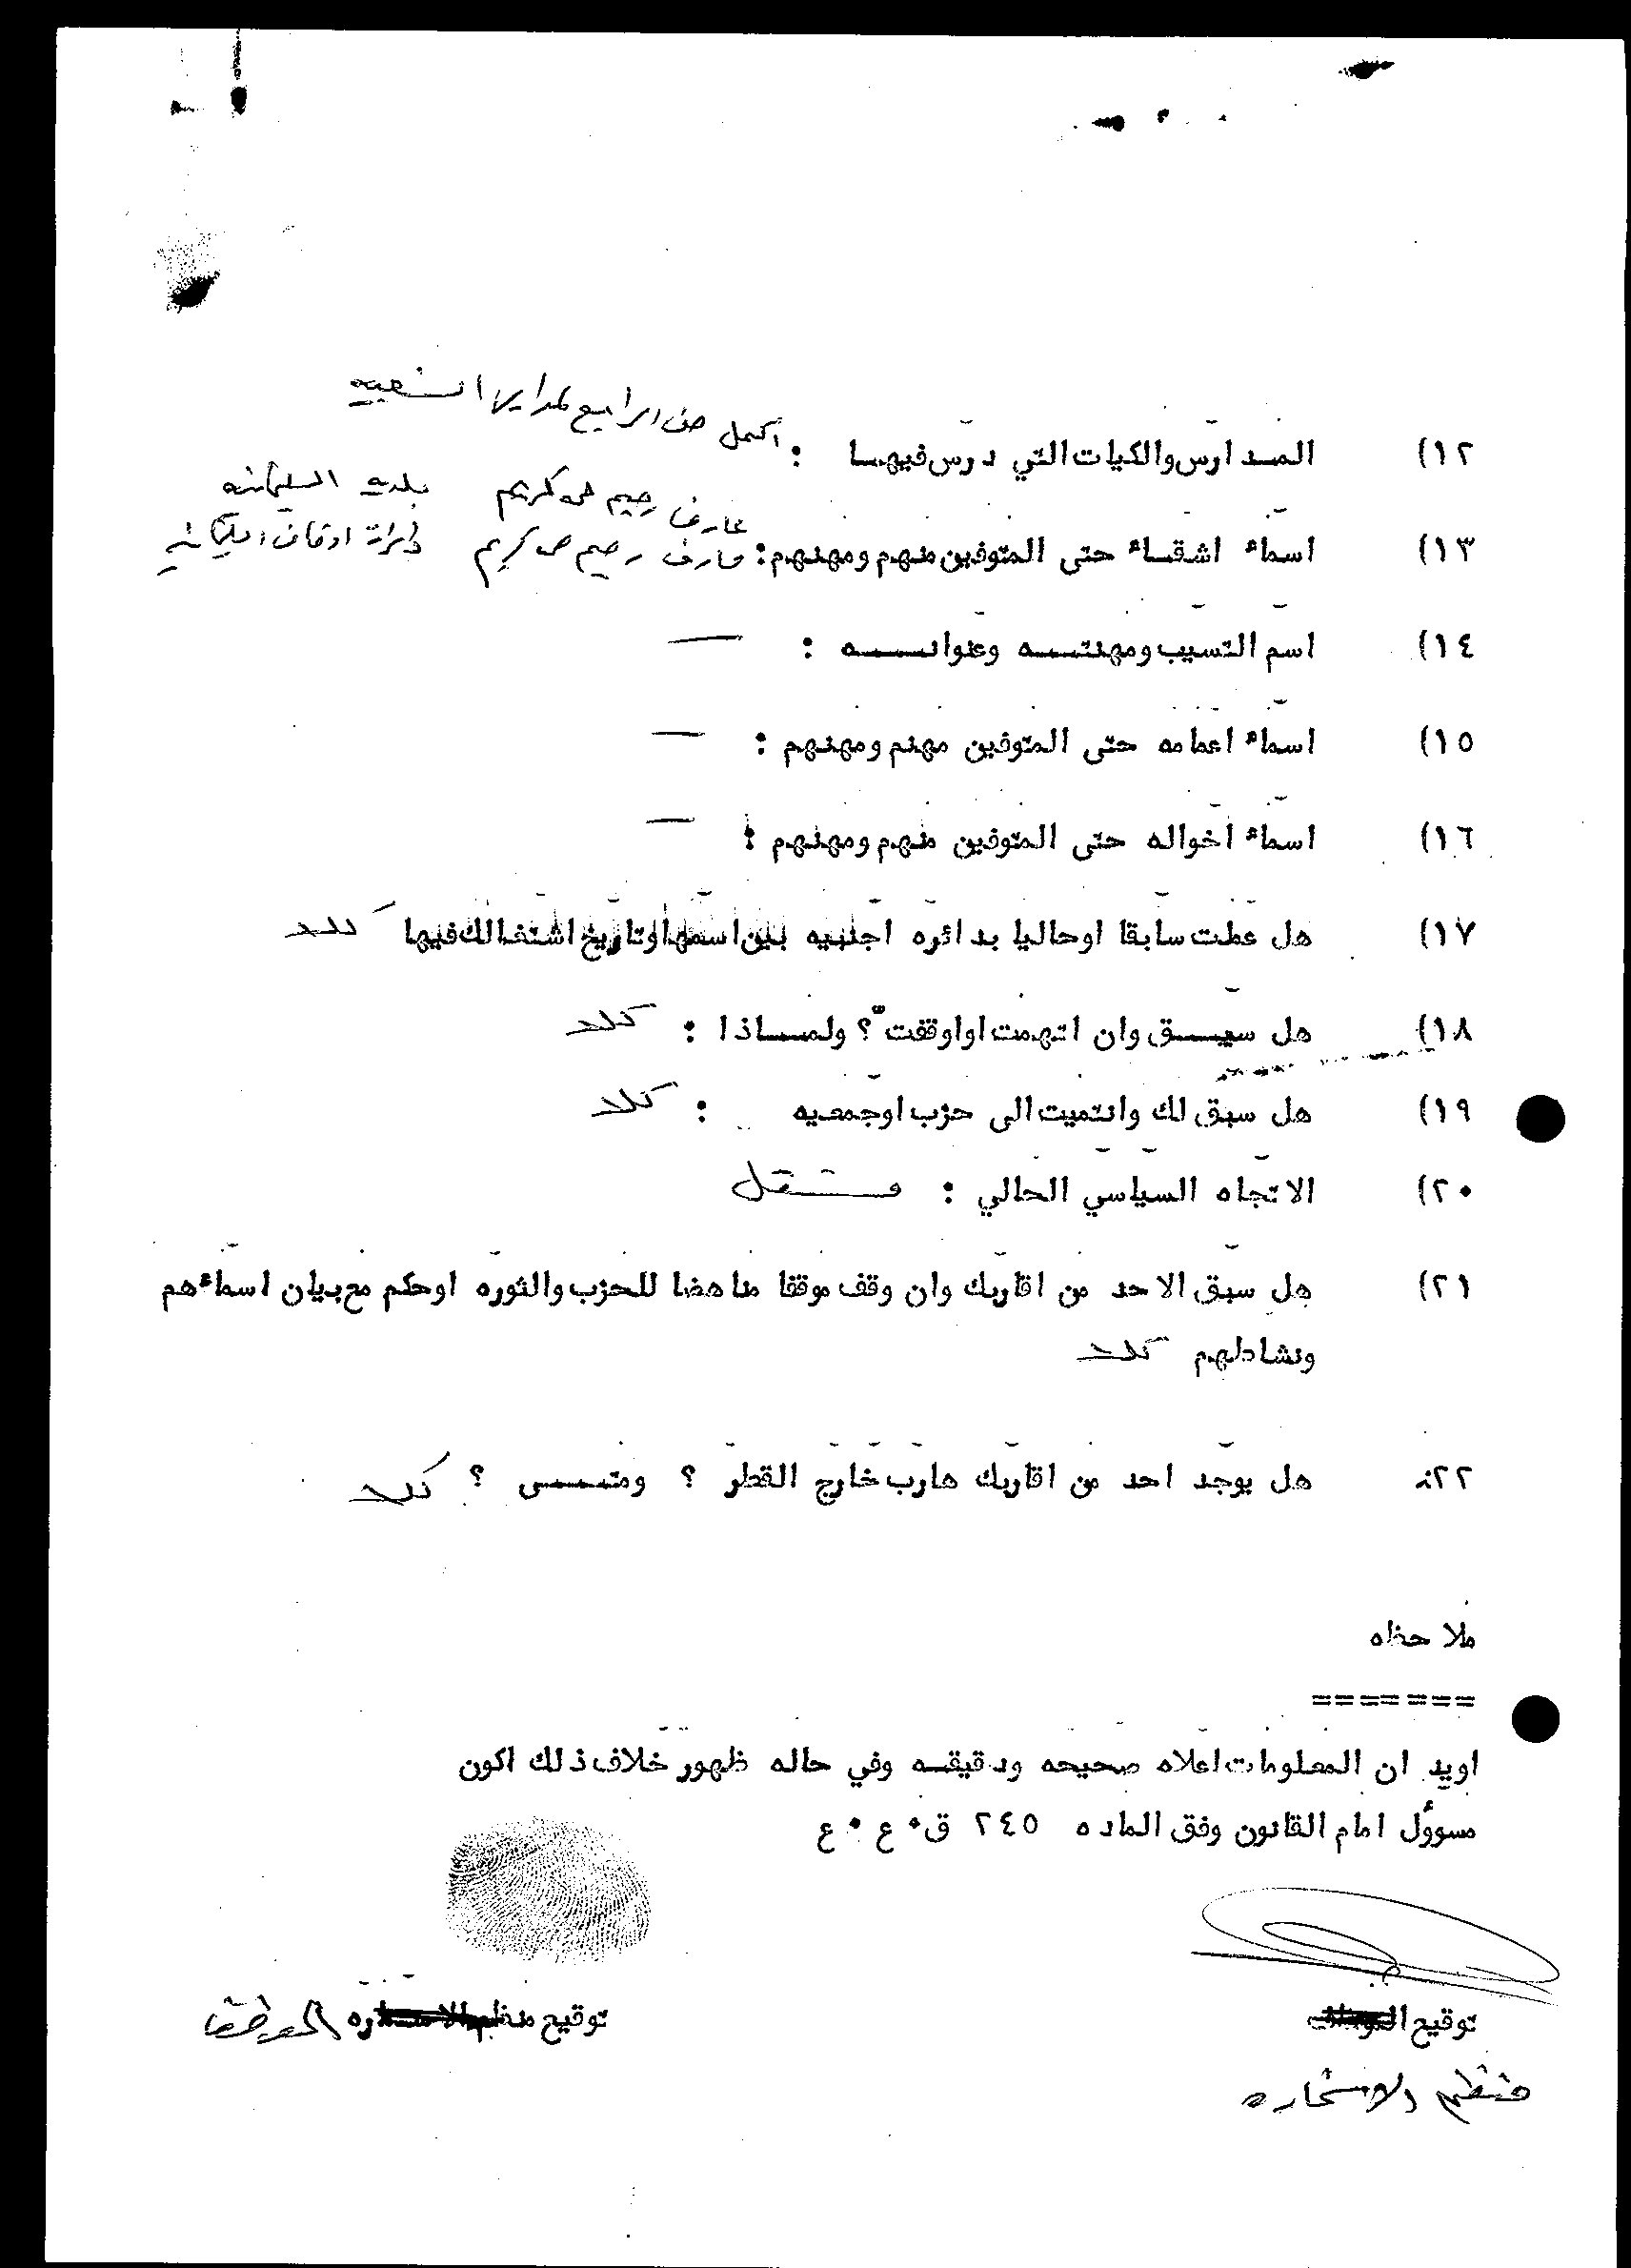 ١٢) المدارس والكيات التي درس فيها : اكمل صف الرابع لمدارس الشعبيه
عارف رحيم حمه كريم بلديه السليمانيه
١٣) اسماء اشقاء حتى المتوفين منهم ومهنهم: عارف رحيم حمه كريم دائرة اوقاف السليمانيه
١٤) اسم التسيب ومهنته وعنوانه : —
١٥) اسماء اعمامه حتى المتوفين مهنم ومهنهم : —
١٦) اسماء اخواله حتى المتوفين منهم ومهنهم : —
١٧) هل عملت سابقا اوحاليا بدائره اجنبيه بين اسمها وتاريخ اشتغالك فيها كلا
١٨) هل سبق وان اتهمت اواوقفت ؟ ولماذا : كلا
١٩) هل سبق لك وانتميت الى حزب اوجمعيه : كلا
٢٠) الاتجاه السياسي الحالي : مستقل
٢١) هل سبق الاحد من اقاربك وان وقف موقفا مناهضا للحزب والثوره اوحكم مع بيان اسماءهم
ونشاطهم كلا
٢٢) هل يوجد احد من اقاربك هارب خارج القطر ؟ ومتى ؟ كلا
ملاحظه
=======
اويد ان المعلومات اعلاه صحيحه ودقيقه وفي حاله ظهور خلاف ذلك اكون
مسوؤل امام القانون وفق الماده ٢٤٥ ق٠ ع ٠ ع
توقيع الموظف توقيع منظم الاستماره الموظف
منظم الاستماره